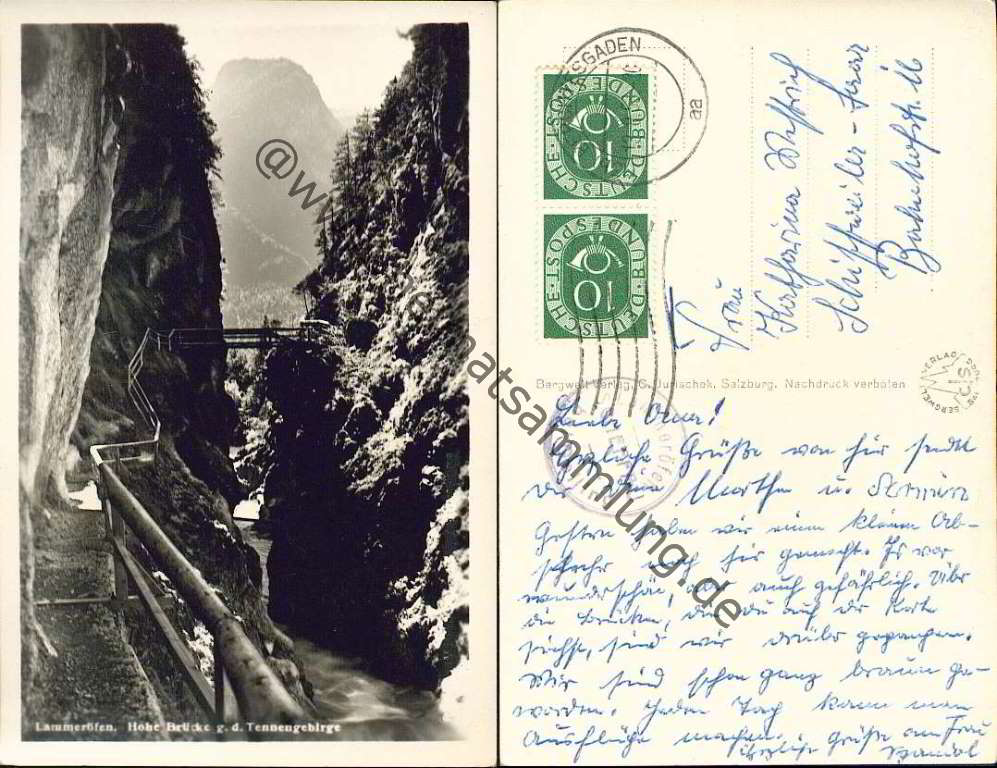 Lammeröfen. Hohe Brücke g. d. Tennengebirge
@www.heimatsammlung.de
SGADEN
aa
DEUTSCHE BUNDESPOST
10
DEUTSCHE BUNDESPOST
10
Frau
Katharina
Schiffweiler - Saar
Bahnhofstr. 16
Bergwelt Verlag, G. Jurischek, Salzburg. Nachdruck verboten
VERLAG
BERGWELT
Liebe Oma!
Herzliche Grüße von hier sendet
Dir Martha u.
Gestern haben wir einen kleinen Ab-
stecher nach hier gemacht. Es war
wunderschön, auch gefährlich. Über
die Brücken, die Du auf der Karte
siehst, sind wir drüber gegangen.
Wir sind schon ganz braun ge-
worden. Jeden Tag kann man
Ausflüge machen.
Herzliche Grüße an Frau